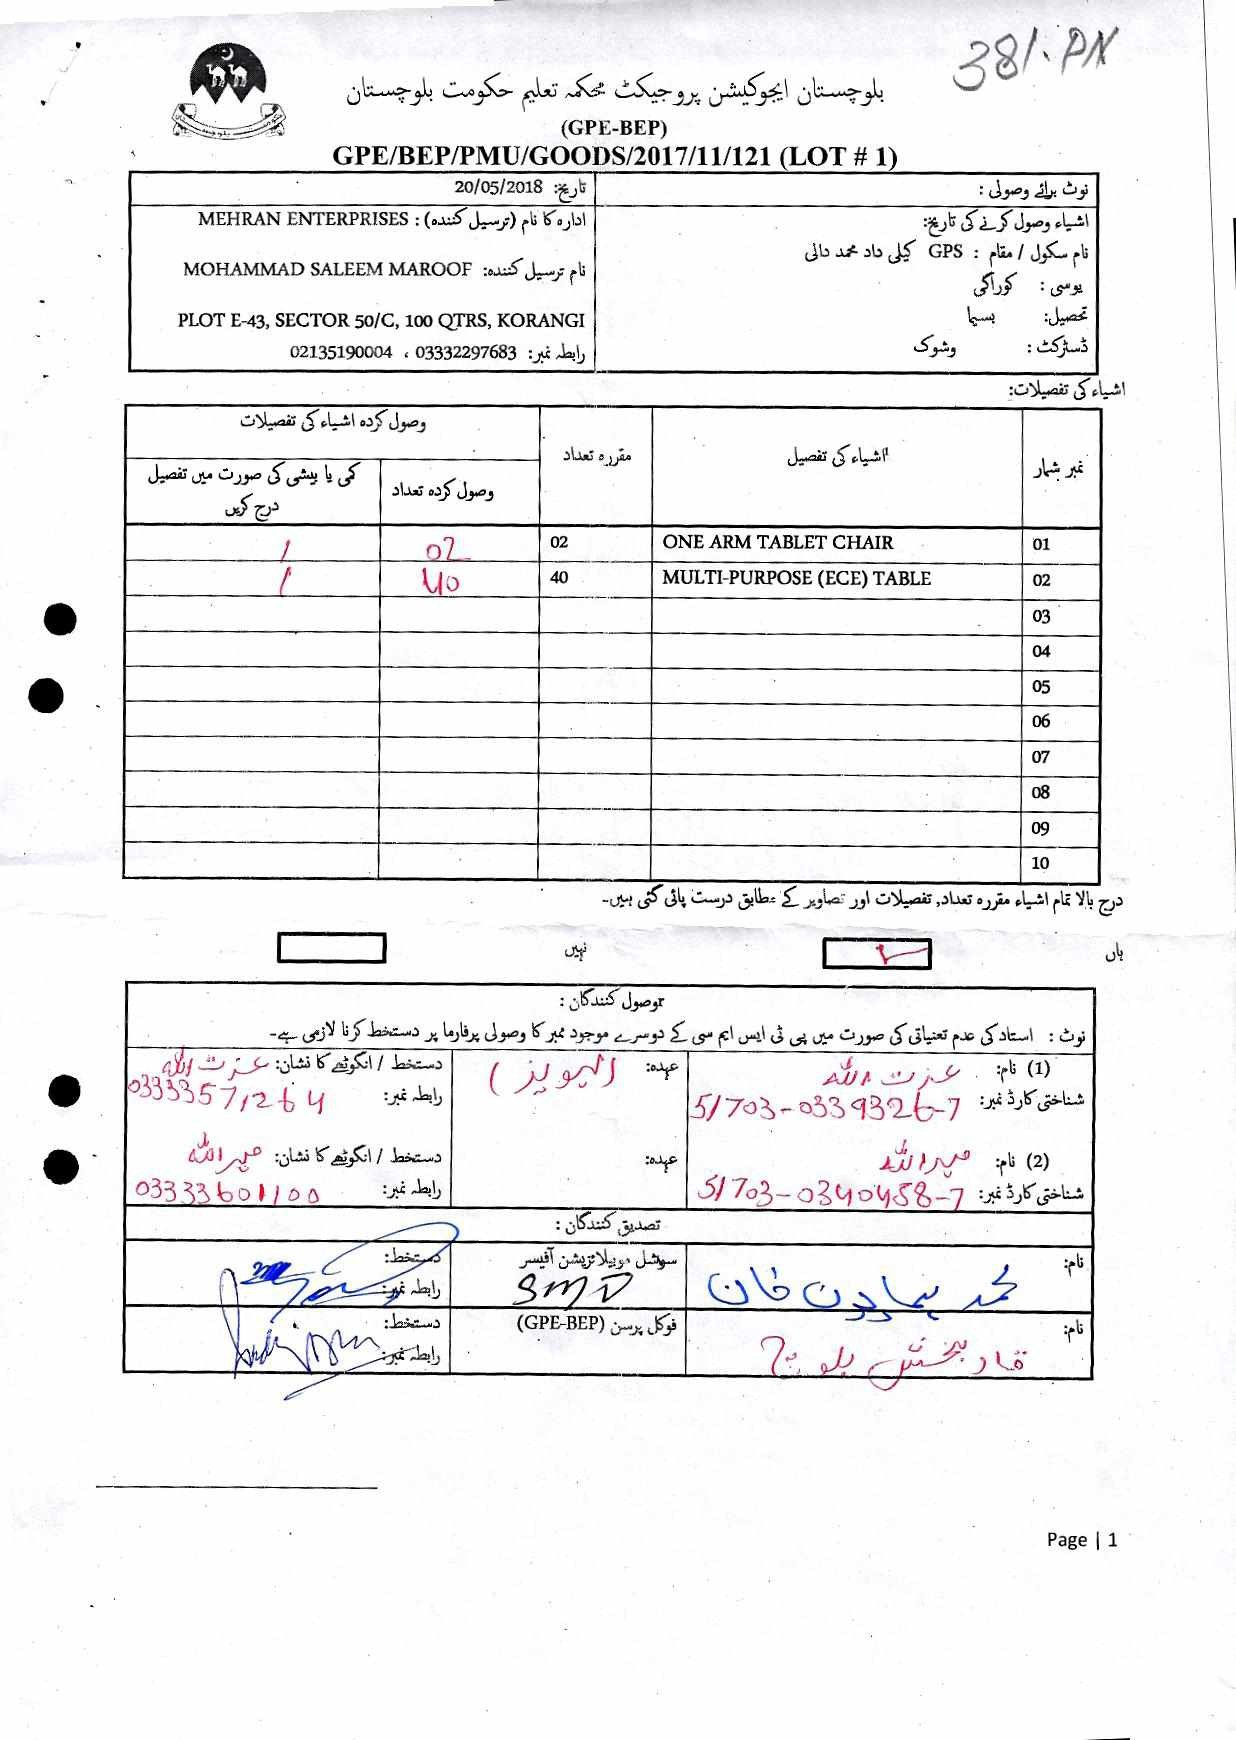 38/. PN
بلوچستان ایجوکیشن پروجیکٹ محکمہ تعلیم حکومت بلوچستان
(GPE-BEP)
GPE/BEP/PMU/GOODS/2017/11/121 (LOT # 1)
نوٹ برائے وصولی :
تاریخ: 20/05/2018
اشیاء وصول کرنے کی تاریخ:
نام سکول / مقام : GPS کیلی داد محمد دالی
یوسی : کوراگی
تحصیل: بسیما
ڈسٹرکٹ : وشوک
ادارہ کا نام (ترسیل کنندہ) : MEHRAN ENTERPRISES
نام ترسیل کنندہ: MOHAMMAD SALEEM MAROOF
PLOT E-43, SECTOR 50/C, 100 QTRS, KORANGI
رابطہ نمبر: 03332297683 ، 02135190004
اشیاء کی تفصیلات:
نمبر شمار
اشیاء کی تفصیل
مقررہ تعداد
وصول کردہ اشیاء کی تفصیلات
وصول کردہ تعداد
کمی یا بیشی کی صورت میں تفصیل
درج کریں
01 ONE ARM TABLET CHAIR 02 02 /
02 MULTI-PURPOSE (ECE) TABLE 40 40 /
03
04
05
06
07
08
09
10
درج بالا تمام اشیاء مقررہ تعداد, تفصیلات اور تصاویر کے مطابق درست پائی گئی ہیں۔
ہاں ✓ نہیں
وصول کنندگان :
نوٹ : استاد کی عدم تعنیاتی کی صورت میں پی ٹی ایس ایم سی کے دوسرے موجود ممبر کا وصولی پرفارما پر دستخط کرنا لازمی ہے۔
(1) نام: عزت اللہ
عہدہ: (لیویز)
دستخط / انگوٹھے کا نشان: عزت اللہ
شناختی کارڈ نمبر: 51703-0339326-7
رابطہ نمبر: 03333571264
(2) نام: میراللہ
عہدہ:
دستخط / انگوٹھے کا نشان: میراللہ
شناختی کارڈ نمبر: 51703-0340458-7
رابطہ نمبر: 03333601100
تصدیق کنندگان :
نام: محمد ہمادون خان
سوشل موبیلائزیشن آفیسر
SMO
دستخط:
رابطہ نمبر:
نام: قادر بخش بلوچ
فوکل پرسن (GPE-BEP)
دستخط:
رابطہ نمبر:
Page | 1